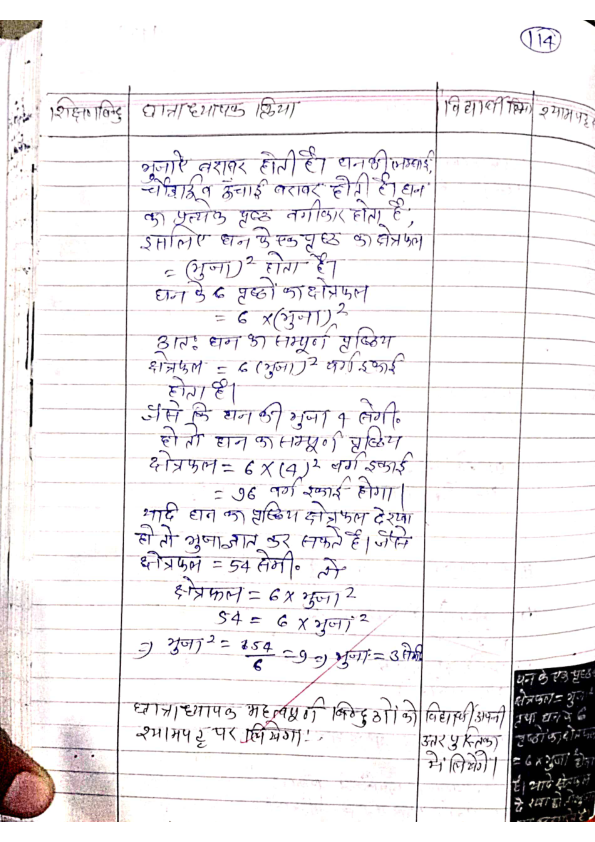 114
शिक्षण बिन्दु छात्राध्यापक क्रिया विद्यार्थी क्रिया श्यामपट्ट
भुजाऐं बराबर होती है। घन की लम्बाई,
चौड़ाई व ऊँचाई बराबर होती है। घन
का प्रत्येक पृष्ठ वर्गाकार होता है,
इसलिए घन के एक पृष्ठ का क्षेत्रफल
= (भुजा)² होता है।
घन के 6 पृष्ठों का क्षेत्रफल
= 6 ×(भुजा)²
अतः घन का सम्पूर्ण पृष्ठिय
क्षेत्रफल = 6 (भुजा)² वर्ग इकाई
होता है।
जैसे कि घन की भुजा 4 सेमी.
हो तो घन का सम्पूर्ण पृष्ठिय
क्षेत्रफल = 6 × (4)² वर्ग इकाई
= 96 वर्ग इकाई होगा।
यदि घन का पृष्ठिय क्षेत्रफल दे रखा
हो तो भुजा ज्ञात कर सकते है। जैसे
क्षेत्रफल = 54 सेमी. तो
क्षेत्रफल = 6 × भुजा²
54 = 6 × भुजा²
⇒ भुजा² = 54/6 = 9 ⇒ भुजा = 3 सेमी
छात्राध्यापक महत्वपूर्ण बिन्दुओं को
श्यामपट्ट पर लिखेगा।
विद्यार्थी अपनी
उत्तर पुस्तिका
में लिखेंगे।
घन के एक पृष्ठ
क्षेत्रफल = भुजा
तथा घन के 6
पृष्ठों का क्षेत्रफल
= 6 × भुजा होता
है।
दे रखा हो